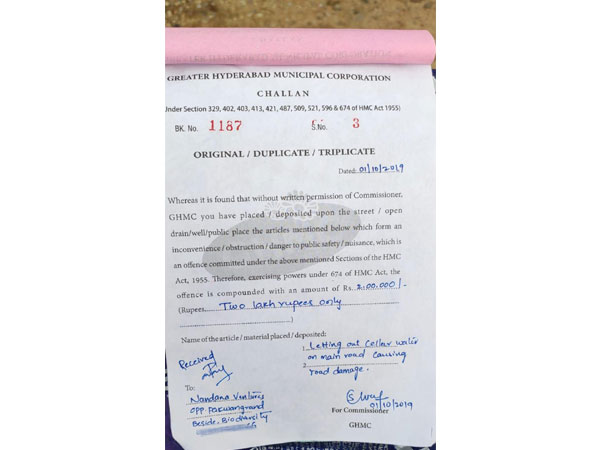 GREATER HYDERABAD MUNICIPAL CORPORATION
CHALLAN
Under Section 329, 402, 403, 413, 421, 487, 509, 521, 596 & 674 of HMC Act 1955)
BK. No. 1187 S.No. 3
ORIGINAL / DUPLICATE / TRIPLICATE
Dated: 01/10/2019
Whereas it is found that without written permission of Commissioner,
GHMC you have placed / deposited upon the street / open
drain/well/public place the articles mentioned below which form an
inconvenience / obstruction / danger to public safety / nuisance, which is
an offence committed under the above mentioned Sections of the HMC
Act, 1955. Therefore, exercising powers under 674 of HMC Act, the
offence is compounded with an amount of Rs. 2,00,000/-
(Rupees Two lakh rupees only
)
Name of the article / material placed / deposited:
Received
1. Letting out Celler water
on main road causing
2. road damage.
To:
Nandana Ventures
OPP. Pakwangrand
Beside. Biodiversity
01/10/2019
For Commissioner
GHMC